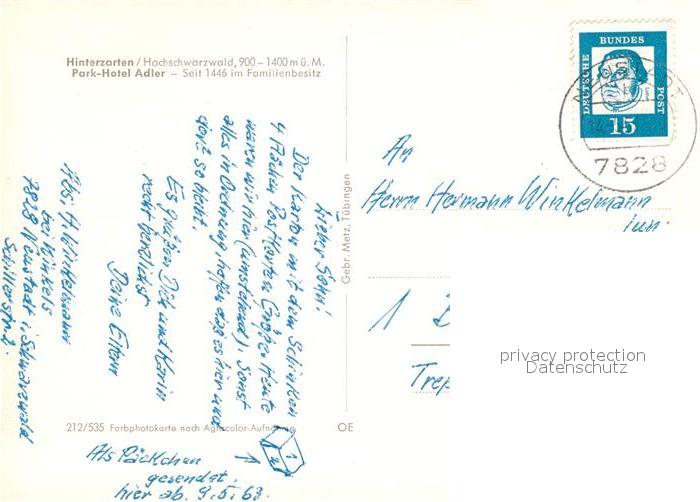 Hinterzarten / Hochschwarzwald, 900 – 1400 m ü. M.
Park-Hotel Adler – Seit 1446 im Familienbesitz
Lieber Sohn!
Der Karton mit dem Schinken
4 Flachen Post Grüße. Heute
waren wir hier (umstehend). Sonst
alles in Ordnung, hoffen dass es hier und
dort so bleibt.
Es grüßen Dich und Karin
recht herzlichst
Deine Eltern
Abs: H. Winkelmann
bei Winkels
7828 Neustadt i. Schwarzwald
Schillerstr.
212/535 Farbphotokarte nach Agfacolor-Aufnahme
OE
Als Päckchen
gesendet,
hier ab. 9.5.63.
Gebr. Metz, Tübingen
DEUTSCHE BUNDES POST
15
7828
An
Herrn Hermann Winkelmann
jun.
1
Trep
privacy protection
Datenschutz